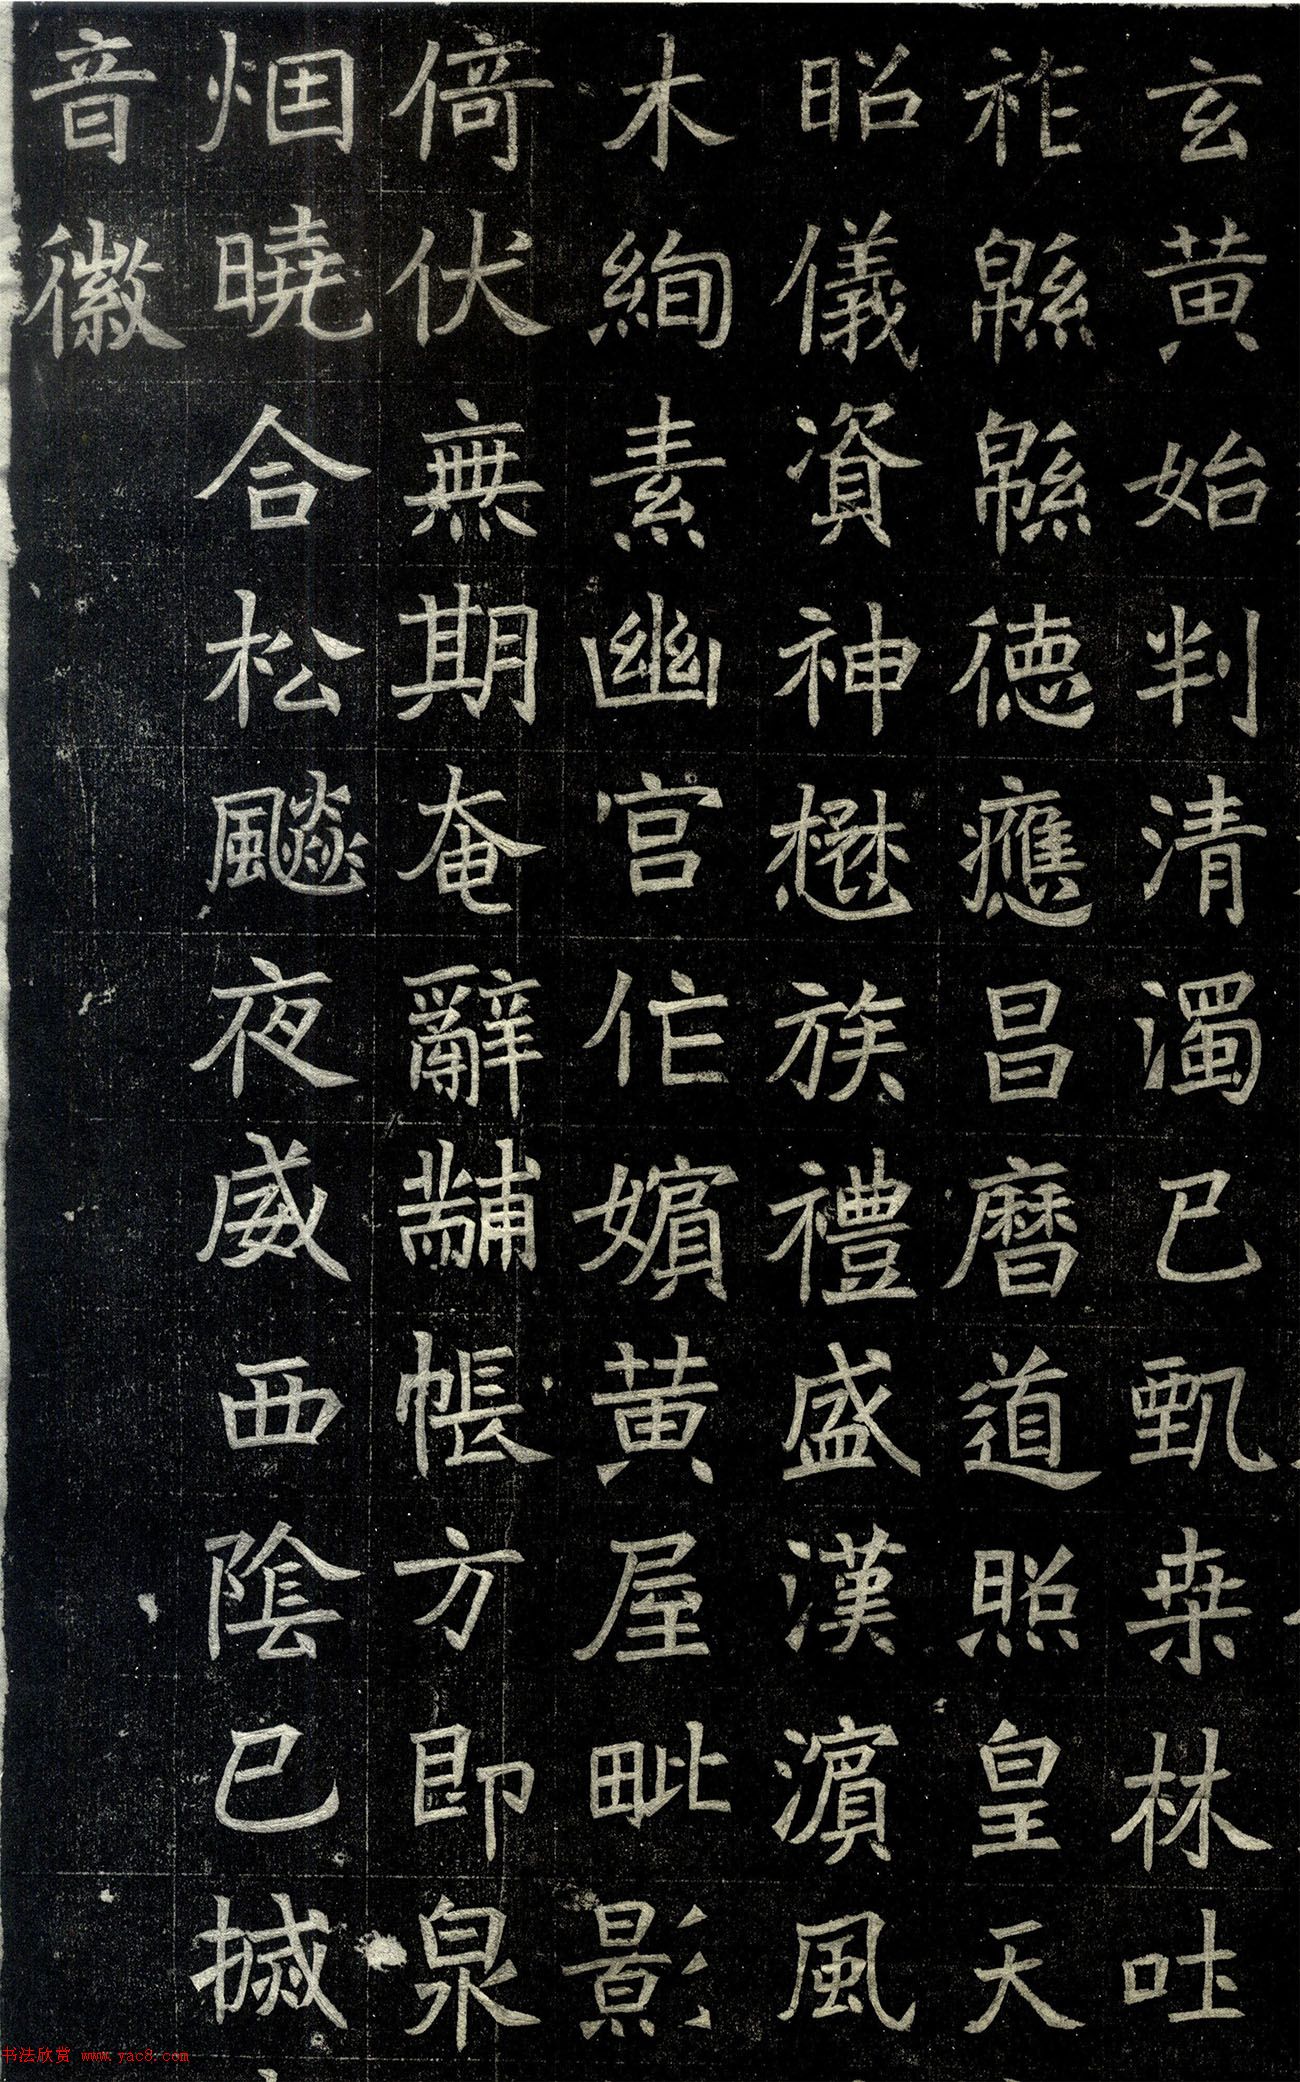 玄黄始判清濁已甄桒林吐
祚緜緜德應昌曆道照皇天
昭儀資神懋族禮盛漢濵風
木絢素幽宫作嬪黄屋毗影
倚伏無期奄辭黼帳方即泉
烟曉合松飈夜威西陰已搣
音徽
书法欣赏 www.yac8.com